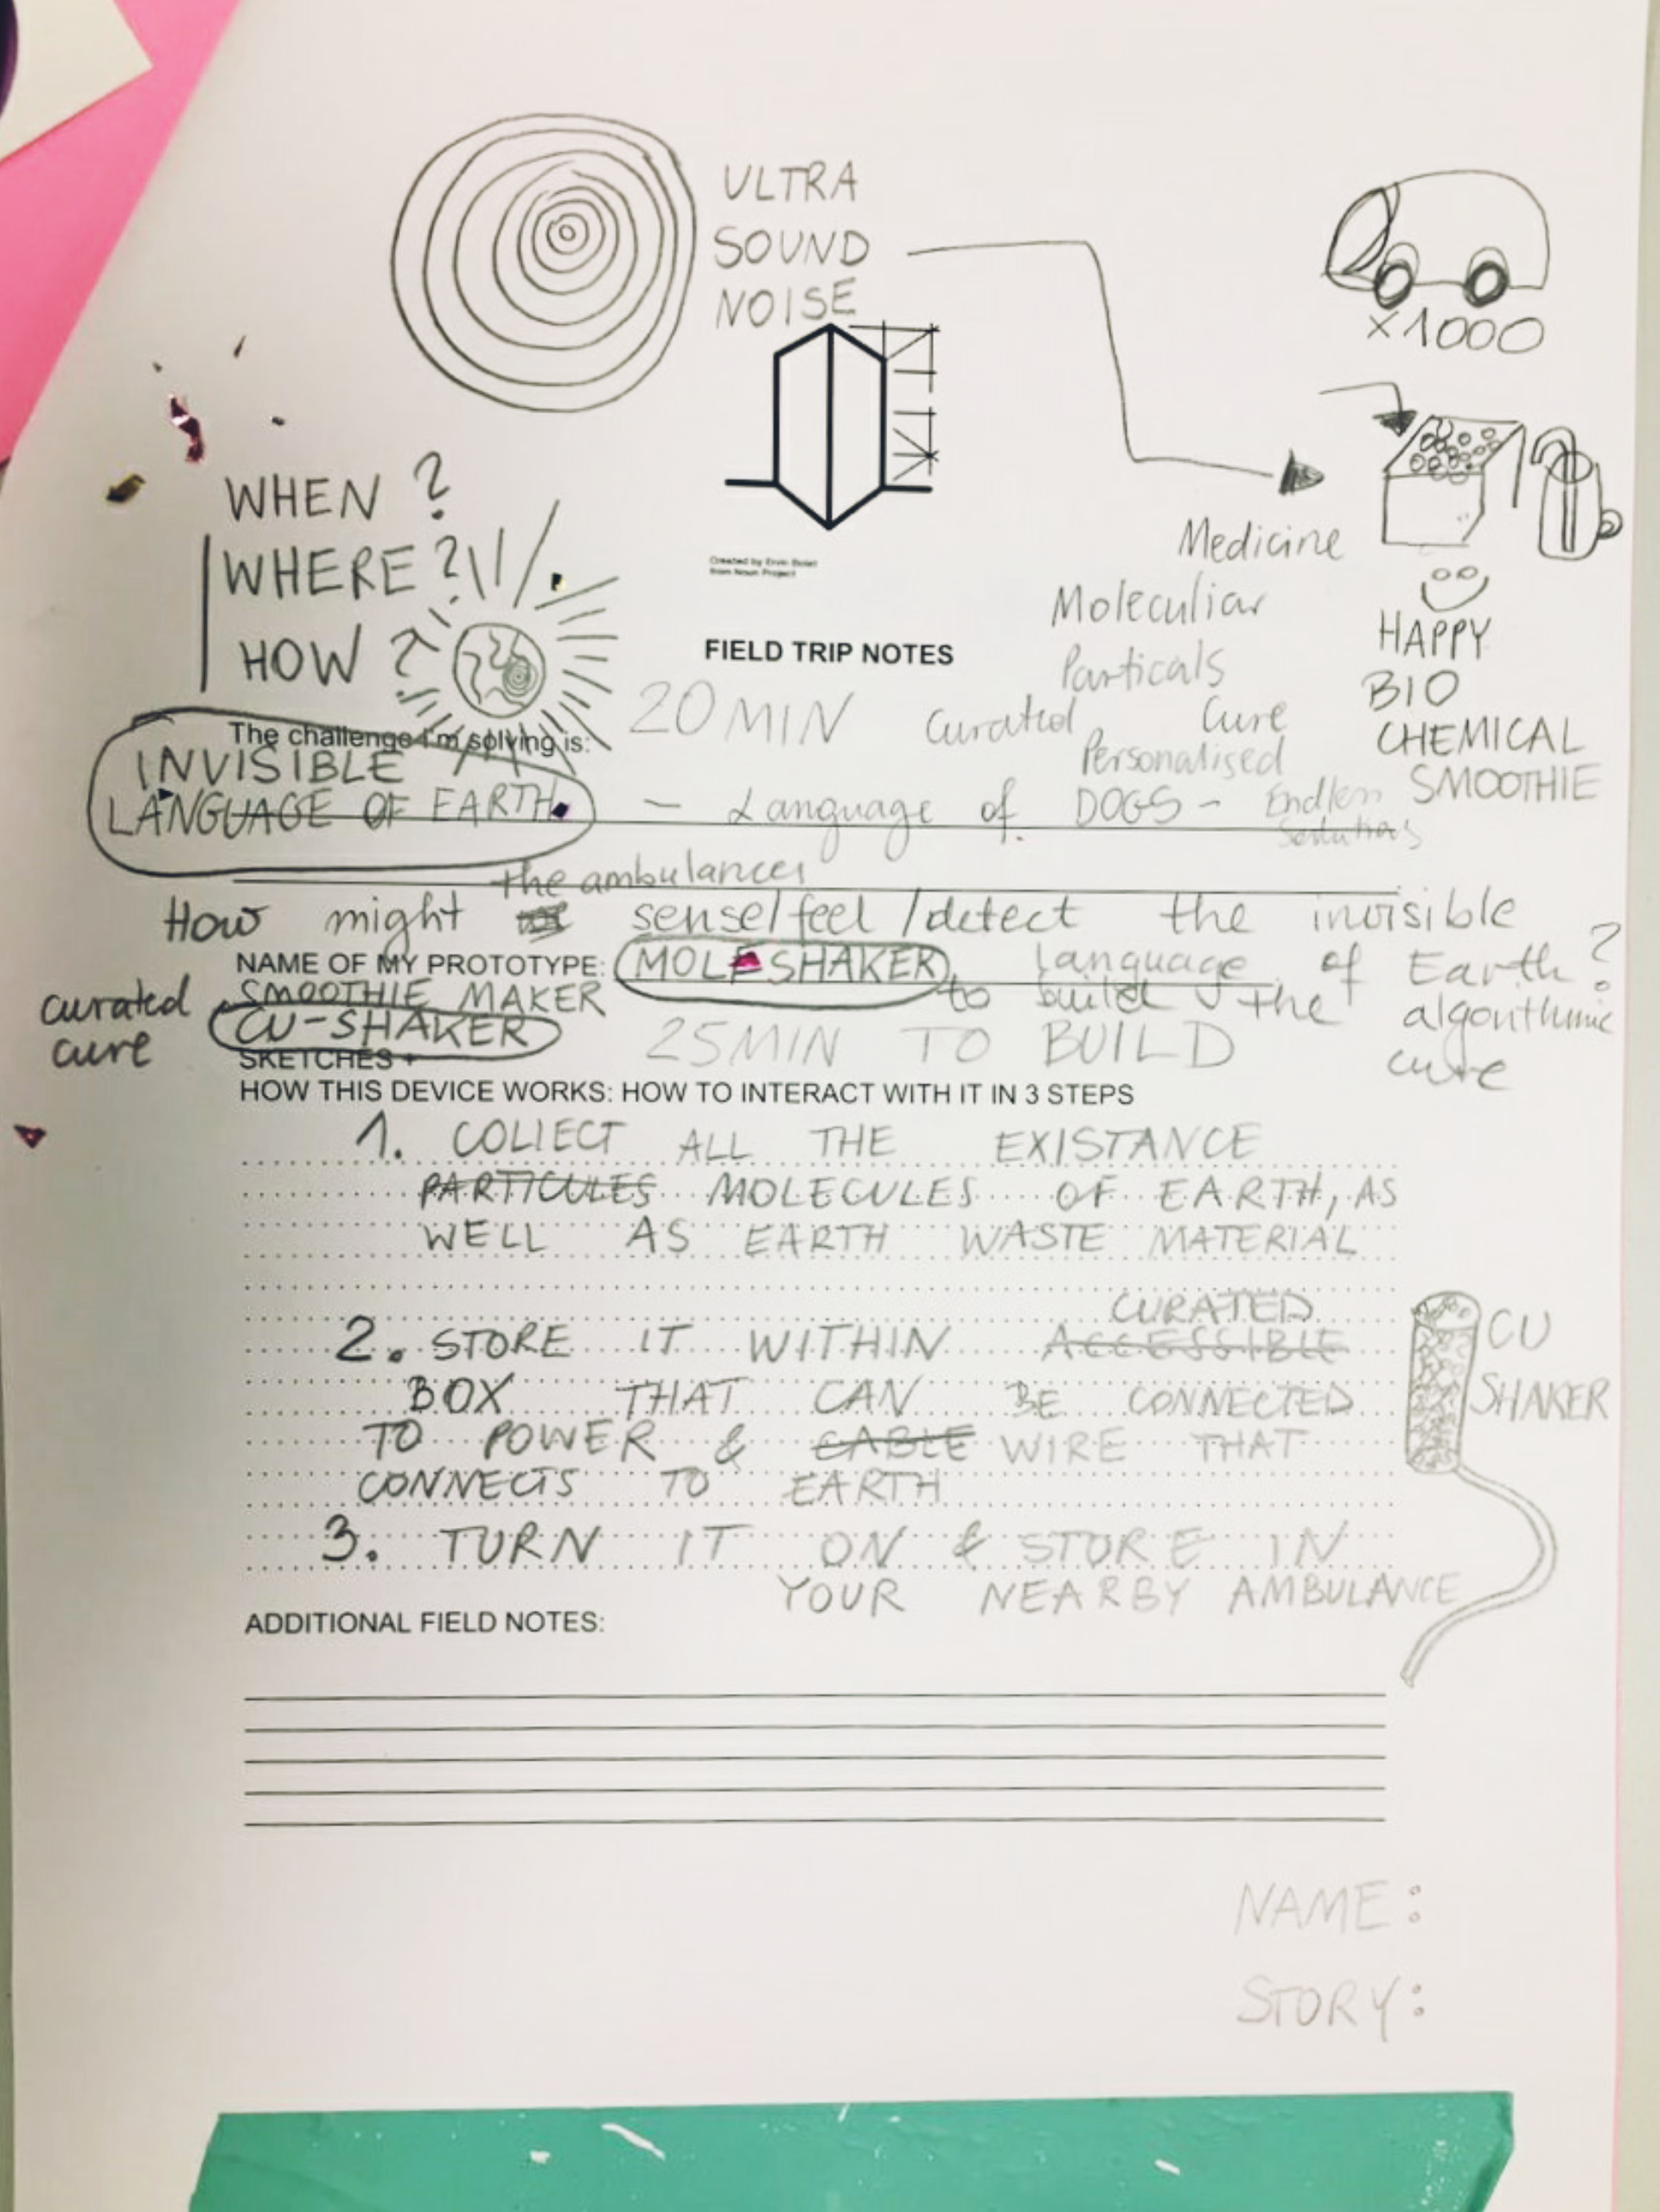 ULTRA
SOUND
NOISE
×1000
WHEN ?
WHERE ?
HOW ?
Created by Ervin Bolat
from Noun Project
Medicine
Moleculiar
Particals
HAPPY
BIO
CHEMICAL
SMOOTHIE
FIELD TRIP NOTES
20 MIN Curated Cure
Personalised
The challenge I'm solving is:
INVISIBLE
LANGUAGE OF EARTH. - Language of DOGS - Endless
the ambulances
How might sense/feel/detect the invisible
language of Earth?
NAME OF MY PROTOTYPE: MOLESHAKER
to build the algorithmic
cure
SMOOTHIE MAKER
curated
cure
CU-SHAKER
25MIN TO BUILD
SKETCHES +
HOW THIS DEVICE WORKS: HOW TO INTERACT WITH IT IN 3 STEPS
1. COLLECT ALL THE EXISTANCE
PARTICULES MOLECULES OF EARTH, AS
WELL AS EARTH WASTE MATERIAL
CURATED
2. STORE IT WITHIN ACCESSIBLE
BOX THAT CAN BE CONNECTED
TO POWER & CABLE WIRE THAT
CONNECTS TO EARTH
CU
SHAKER
3. TURN IT ON & STORE IN
YOUR NEARBY AMBULANCE
ADDITIONAL FIELD NOTES:
NAME:
STORY: